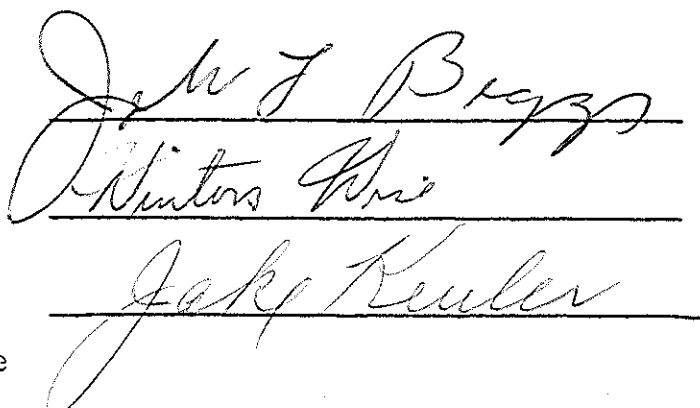 John F Biggs
Winters Wise
Jake Keuler
e